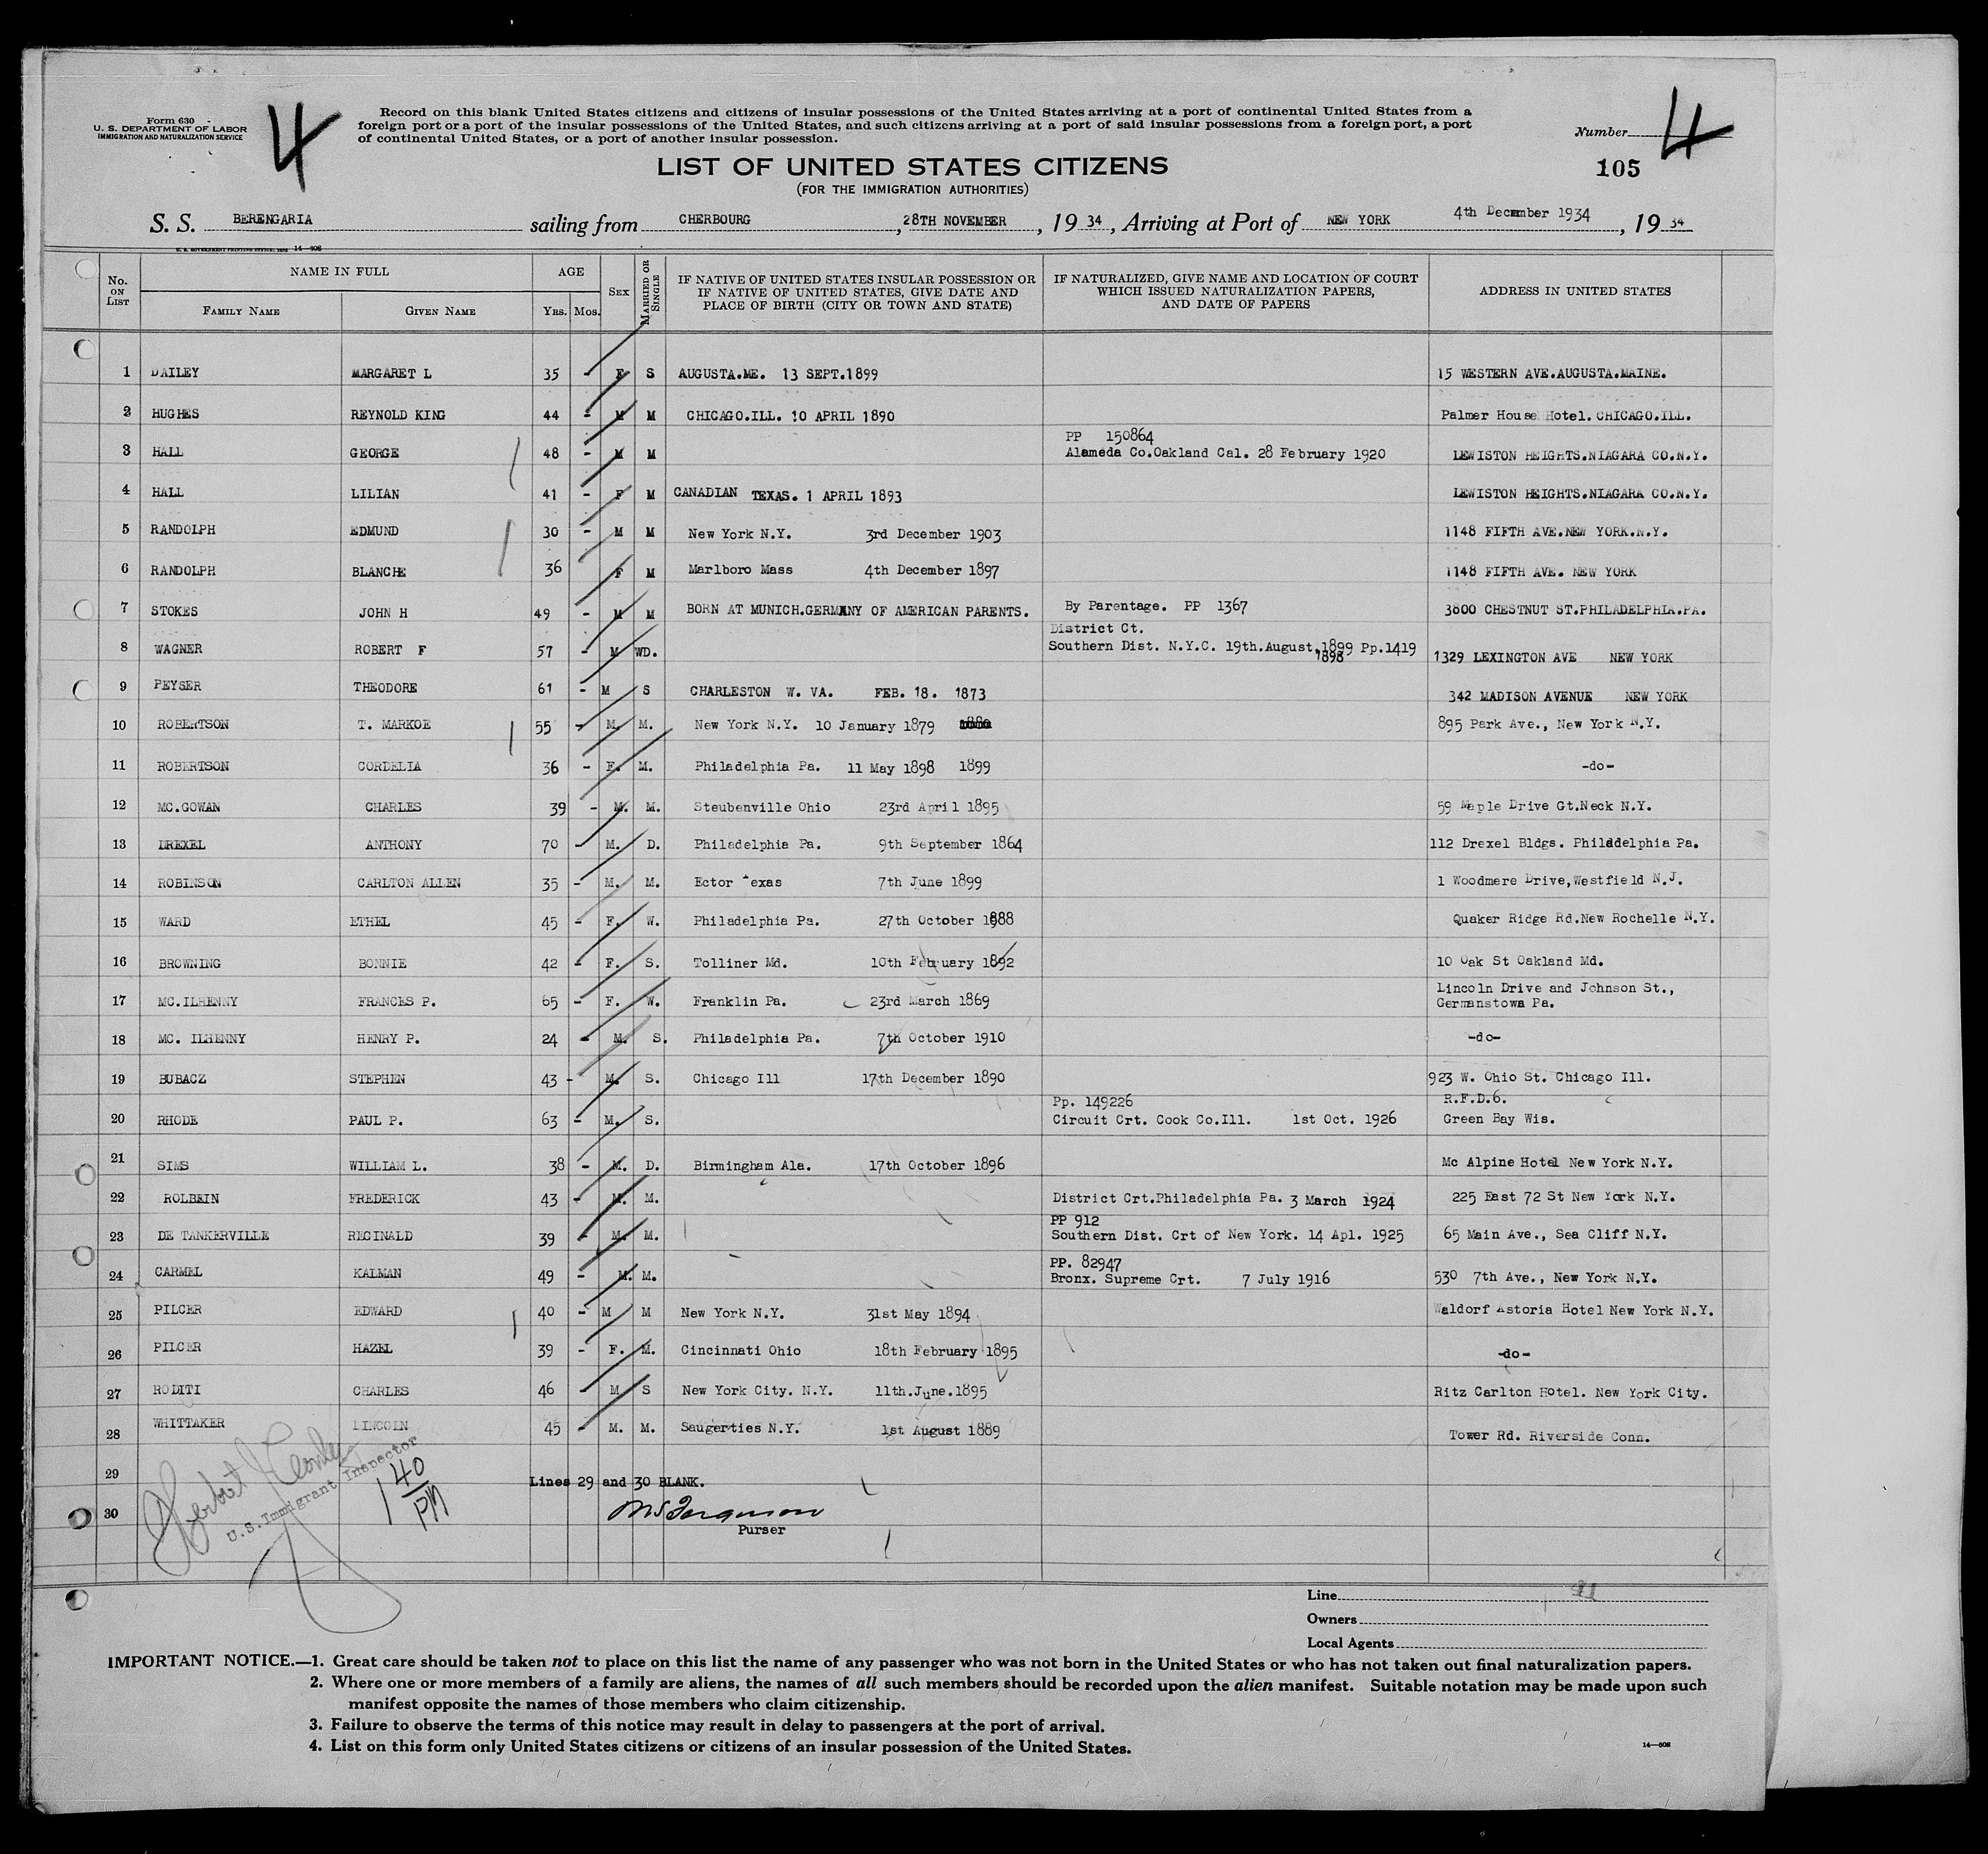 Form 630
U. S. DEPARTMENT OF LABOR
IMMIGRATION AND NATURALIZATION SERVICE
4
Record on this blank United States citizens and citizens of insular possessions of the United States arriving at a port of continental United States from a
foreign port or a port of the insular possessions of the United States, and such citizens arriving at a port of said insular possessions from a foreign port, a port
of continental United States, or a port of another insular possession.
Number 4
105
LIST OF UNITED STATES CITIZENS
(FOR THE IMMIGRATION AUTHORITIES)
S. S. BERENGARIA sailing from CHERBOURG, 28TH NOVEMBER, 19 34, Arriving at Port of NEW YORK 4th December 1934, 19 34
U. S. GOVERNMENT PRINTING OFFICE: 14—508
No. ON LIST NAME IN FULL FAMILY NAME GIVEN NAME AGE Yrs. Mos. SEX MARRIED OR SINGLE IF NATIVE OF UNITED STATES INSULAR POSSESSION OR IF NATIVE OF UNITED STATES, GIVE DATE AND PLACE OF BIRTH (CITY OR TOWN AND STATE) IF NATURALIZED, GIVE NAME AND LOCATION OF COURT WHICH ISSUED NATURALIZATION PAPERS, AND DATE OF PAPERS ADDRESS IN UNITED STATES
1 DAILEY MARGARET L 35 - F S AUGUSTA.ME. 13 SEPT.1899 15 WESTERN AVE.AUGUSTA.MAINE.
2 HUGHES REYNOLD KING 44 - M M CHICAGO.ILL. 10 APRIL 1890 Palmer House Hotel. CHICAGO.ILL.
PP 150864
3 HALL GEORGE 48 - M M Alameda Co.Oakland Cal. 28 February 1920 LEWISTON HEIGHTS.NIAGARA CO.N.Y.
4 HALL LILIAN 41 - F M CANADIAN TEXAS. 1 APRIL 1893 LEWISTON HEIGHTS.NIAGARA CO.N.Y.
5 RANDOLPH EDMUND 30 - M M New York N.Y. 3rd December 1903 1148 FIFTH AVE.NEW YORK.N.Y.
6 RANDOLPH BLANCHE 36 F M Marlboro Mass 4th December 1897 1148 FIFTH AVE. NEW YORK
7 STOKES JOHN H 49 - M M BORN AT MUNICH.GERMANY OF AMERICAN PARENTS. By Parentage. PP 1367 3800 CHESTNUT ST.PHILADELPHIA.PA.
District Ct.
8 WAGNER ROBERT F 57 - M WD. Southern Dist. N.Y.C. 19th.August,1899 Pp.1419 1329 LEXINGTON AVE NEW YORK
1898
9 PEYSER THEODORE 61 - M S CHARLESTON W. VA. FEB. 18. 1873 342 MADISON AVENUE NEW YORK
10 ROBERTSON T. MARKOE 55 - M. M. New York N.Y. 10 January 1879 1880 895 Park Ave., New York N.Y.
11 ROBERTSON CORDELIA 36 - F. M. Philadelphia Pa. 11 May 1898 1899 -do-
12 MC.GOWAN CHARLES 39 - M. M. Steubenville Ohio 23rd April 1895 59 Maple Drive Gt.Neck N.Y.
13 DREXEL ANTHONY 70 - M. D. Philadelphia Pa. 9th September 1864 112 Drexel Bldgs. Philddelphia Pa.
14 ROBINSON CARLTON ALLEN 35 - M. M. Ector Texas 7th June 1899 1 Woodmere Drive,Westfield N.J.
15 WARD ETHEL 45 - F. W. Philadelphia Pa. 27th October 1888 Quaker Ridge Rd.New Rochelle N.Y.
16 BROWNING BONNIE 42 - F. S. Tolliner Md. 10th February 1892 10 Oak St Oakland Md.
Lincoln Drive and Johnson St.,
17 MC.ILHENNY FRANCES P. 65 - F. W. Franklin Pa. 23rd March 1869 Germanstown Pa.
18 MC. ILHENNY HENRY P. 24 - M. S. Philadelphia Pa. 7th October 1910 -do-
19 BUBACZ STEPHEN 43 - M. S. Chicago Ill 17th December 1890 923 W. Ohio St. Chicago Ill.
Pp. 149226 R.F.D.6.
20 RHODE PAUL P. 63 - M. S. Circuit Crt. Cook Co.Ill. 1st Oct. 1926 Green Bay Wis.
21 SIMS WILLIAM L. 38 - M. D. Birmingham Ala. 17th October 1896 Mc Alpine Hotel New York N.Y.
22 ROLBEIN FREDERICK 43 - M. M. District Crt.Philadelphia Pa. 3 March 1924 225 East 72 St New York N.Y.
PP 912
23 DE TANKERVILLE REGINALD 39 - M. M. Southern Dist. Crt of New York. 14 Apl. 1925 65 Main Ave., Sea Cliff N.Y.
PP. 82947
24 CARMEL KALMAN 49 - M. M. Bronx. Supreme Crt. 7 July 1916 530 7th Ave., New York N.Y.
25 PILCER EDWARD 40 - M M New York N.Y. 31st May 1894 Waldorf Astoria Hotel New York N.Y.
26 PILCER HAZEL 39 - F. M. Cincinnati Ohio 18th February 1895 -do-
27 RODITI CHARLES 46 - M S New York City. N.Y. 11th.June.1895 Ritz Carlton Hotel. New York City.
28 WHITTAKER LINCOLN 45 - M. M. Saugerties N.Y. 1st August 1889 Tower Rd. Riverside Conn.
29 Lines 29 and 30 BLANK.
30
U.S. Immigrant Inspector
1 40 PM
Purser
Line
Owners
Local Agents
IMPORTANT NOTICE.—1. Great care should be taken not to place on this list the name of any passenger who was not born in the United States or who has not taken out final naturalization papers.
2. Where one or more members of a family are aliens, the names of all such members should be recorded upon the alien manifest. Suitable notation may be made upon such
manifest opposite the names of those members who claim citizenship.
3. Failure to observe the terms of this notice may result in delay to passengers at the port of arrival.
4. List on this form only United States citizens or citizens of an insular possession of the United States.
14—508